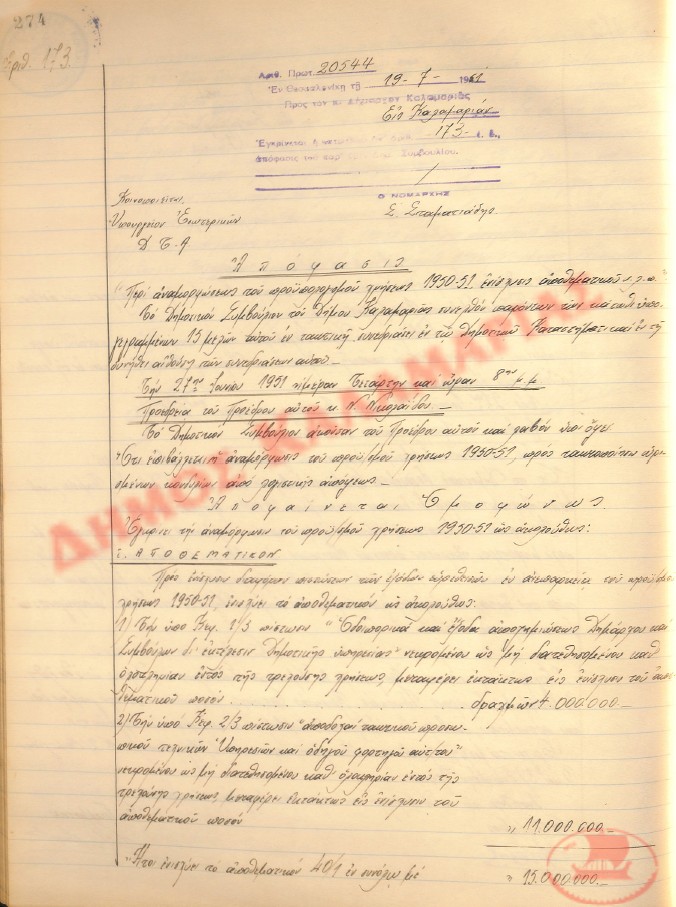 274
Αριθ. 173.
Αριθ. Πρωτ. 20544
Ἐν Θεσσαλονίκῃ τῇ 19-7-1951
Πρὸς τὸν κ. Δήμαρχον Καλαμαριᾶς
Εἰς Καλαμαριάν
Ἐγκρίνεται 173
ἀποφάσις τοῦ Συμβουλίου.
Ὁ ΝΟΜΑΡΧΗΣ
Σ. Σταματιάδης
Κοινοποιεῖται
Ὑπουργεῖον Ἐσωτερικῶν
Δ Τ Α
Ἀπόφασις
"Περὶ ἀναμορφώσεως τοῦ προϋπολογισμοῦ χρήσεως 1950-51 ἐνίσχυσις ἀποθεματικοῦ κ.λ.π."
Τὸ Δημοτικὸν Συμβούλιον τοῦ Δήμου Καλαμαριᾶς συνελθὸν παρόντων τῶν κάτωθι ὑπο-
γεγραμμένων 15 μελῶν αὐτοῦ ἐν τακτικῇ συνεδριάσει ἐν τῷ Δημοτικῷ Καταστήματι καὶ ἐν τῇ
συνήθει αἰθούσῃ τῶν συνεδριάσεων αὐτοῦ—
Τὴν 27ην Ἰουνίου 1951 ἡμέραν Τετάρτην καὶ ὥραν 8ην μ.μ
Προεδρεία τοῦ Προέδρου αὐτοῦ κ. Ν. Νικολαΐδου—
Τὸ Δημοτικὸν Συμβούλιον ἀκοῦσαν τοῦ Προέδρου αὐτοῦ καὶ λαβὸν ὑπ' ὄψει
Ὅτι ἐπιβάλλεται ἡ ἀναμόρφωσις τοῦ προϋ/σμοῦ χρήσεως 1950-51, πρὸς τακτοποίησιν ὡρι-
σμένων κονδυλίων ἀπὸ λογιστικῆς ἀπόψεως—
Ἀποφαίνεται Ὁμοφώνως.
Ἐγκρίνει τὴν ἀναμόρφωσιν τοῦ προϋ/σμοῦ χρήσεως 1950-51 ὡς ἀκολούθως:
ΑΠΟΘΕΜΑΤΙΚΟΝ
Πρὸς ἐνίσχυσιν διαφόρων πιστώσεων τῶν ἐξόδων εὑρεθεισῶν ἐν ἀνεπαρκείᾳ τοῦ προϋ/σμοῦ
χρήσεως 1950-51, ἐνισχύει τὸ ἀποθεματικὸν ὡς ἀκολούθως:
1) Τὴν ὑπὸ Κεφ. 2/3 πίστωσιν "Ὁδοιπορικὰ καὶ ἔξοδα ἀποζημιώσεως Δημάρχου καὶ
Συμβούλων δι' ἐκτέλεσιν Δημοτικῆς ὑπηρεσίας" νεκρουμένου ὡς μὴ δαπανηθησομένου καθ'
ὁλοκληρίαν ἐντὸς τῆς τρεχούσης χρήσεως, μεταφέρει ἐκτάκτως εἰς ἐνίσχυσιν τοῦ ἀπο-
θεματικοῦ ποσὸν . . . . . δραχμῶν 4.000.000.—
2) Τὴν ὑπὸ Κεφ. 2/3 πίστωσιν "ἀποδοχαὶ τακτικοῦ προσω-
πικοῦ τεχνικῶν Ὑπηρεσιῶν καὶ ὁδηγοῦ φορτηγοῦ αὐτ/του"
νεκρουμένου ὡς μὴ δαπανηθησομένου καθ' ὁλοκληρίαν ἐντὸς τῆς
τρεχούσης χρήσεως, μεταφέρει ἐκτάκτως εἰς ἐνίσχυσιν τοῦ
ἀποθεματικοῦ ποσὸν " 11.000.000.—
Ἤτοι ἐνισχύει τὸ ἀποθεματικὸν 40/1 ἐν συνόλῳ μὲ " 15.000.000.—
ΔΗΜΟΣ ΚΑΛΑΜΑΡΙΑΣ